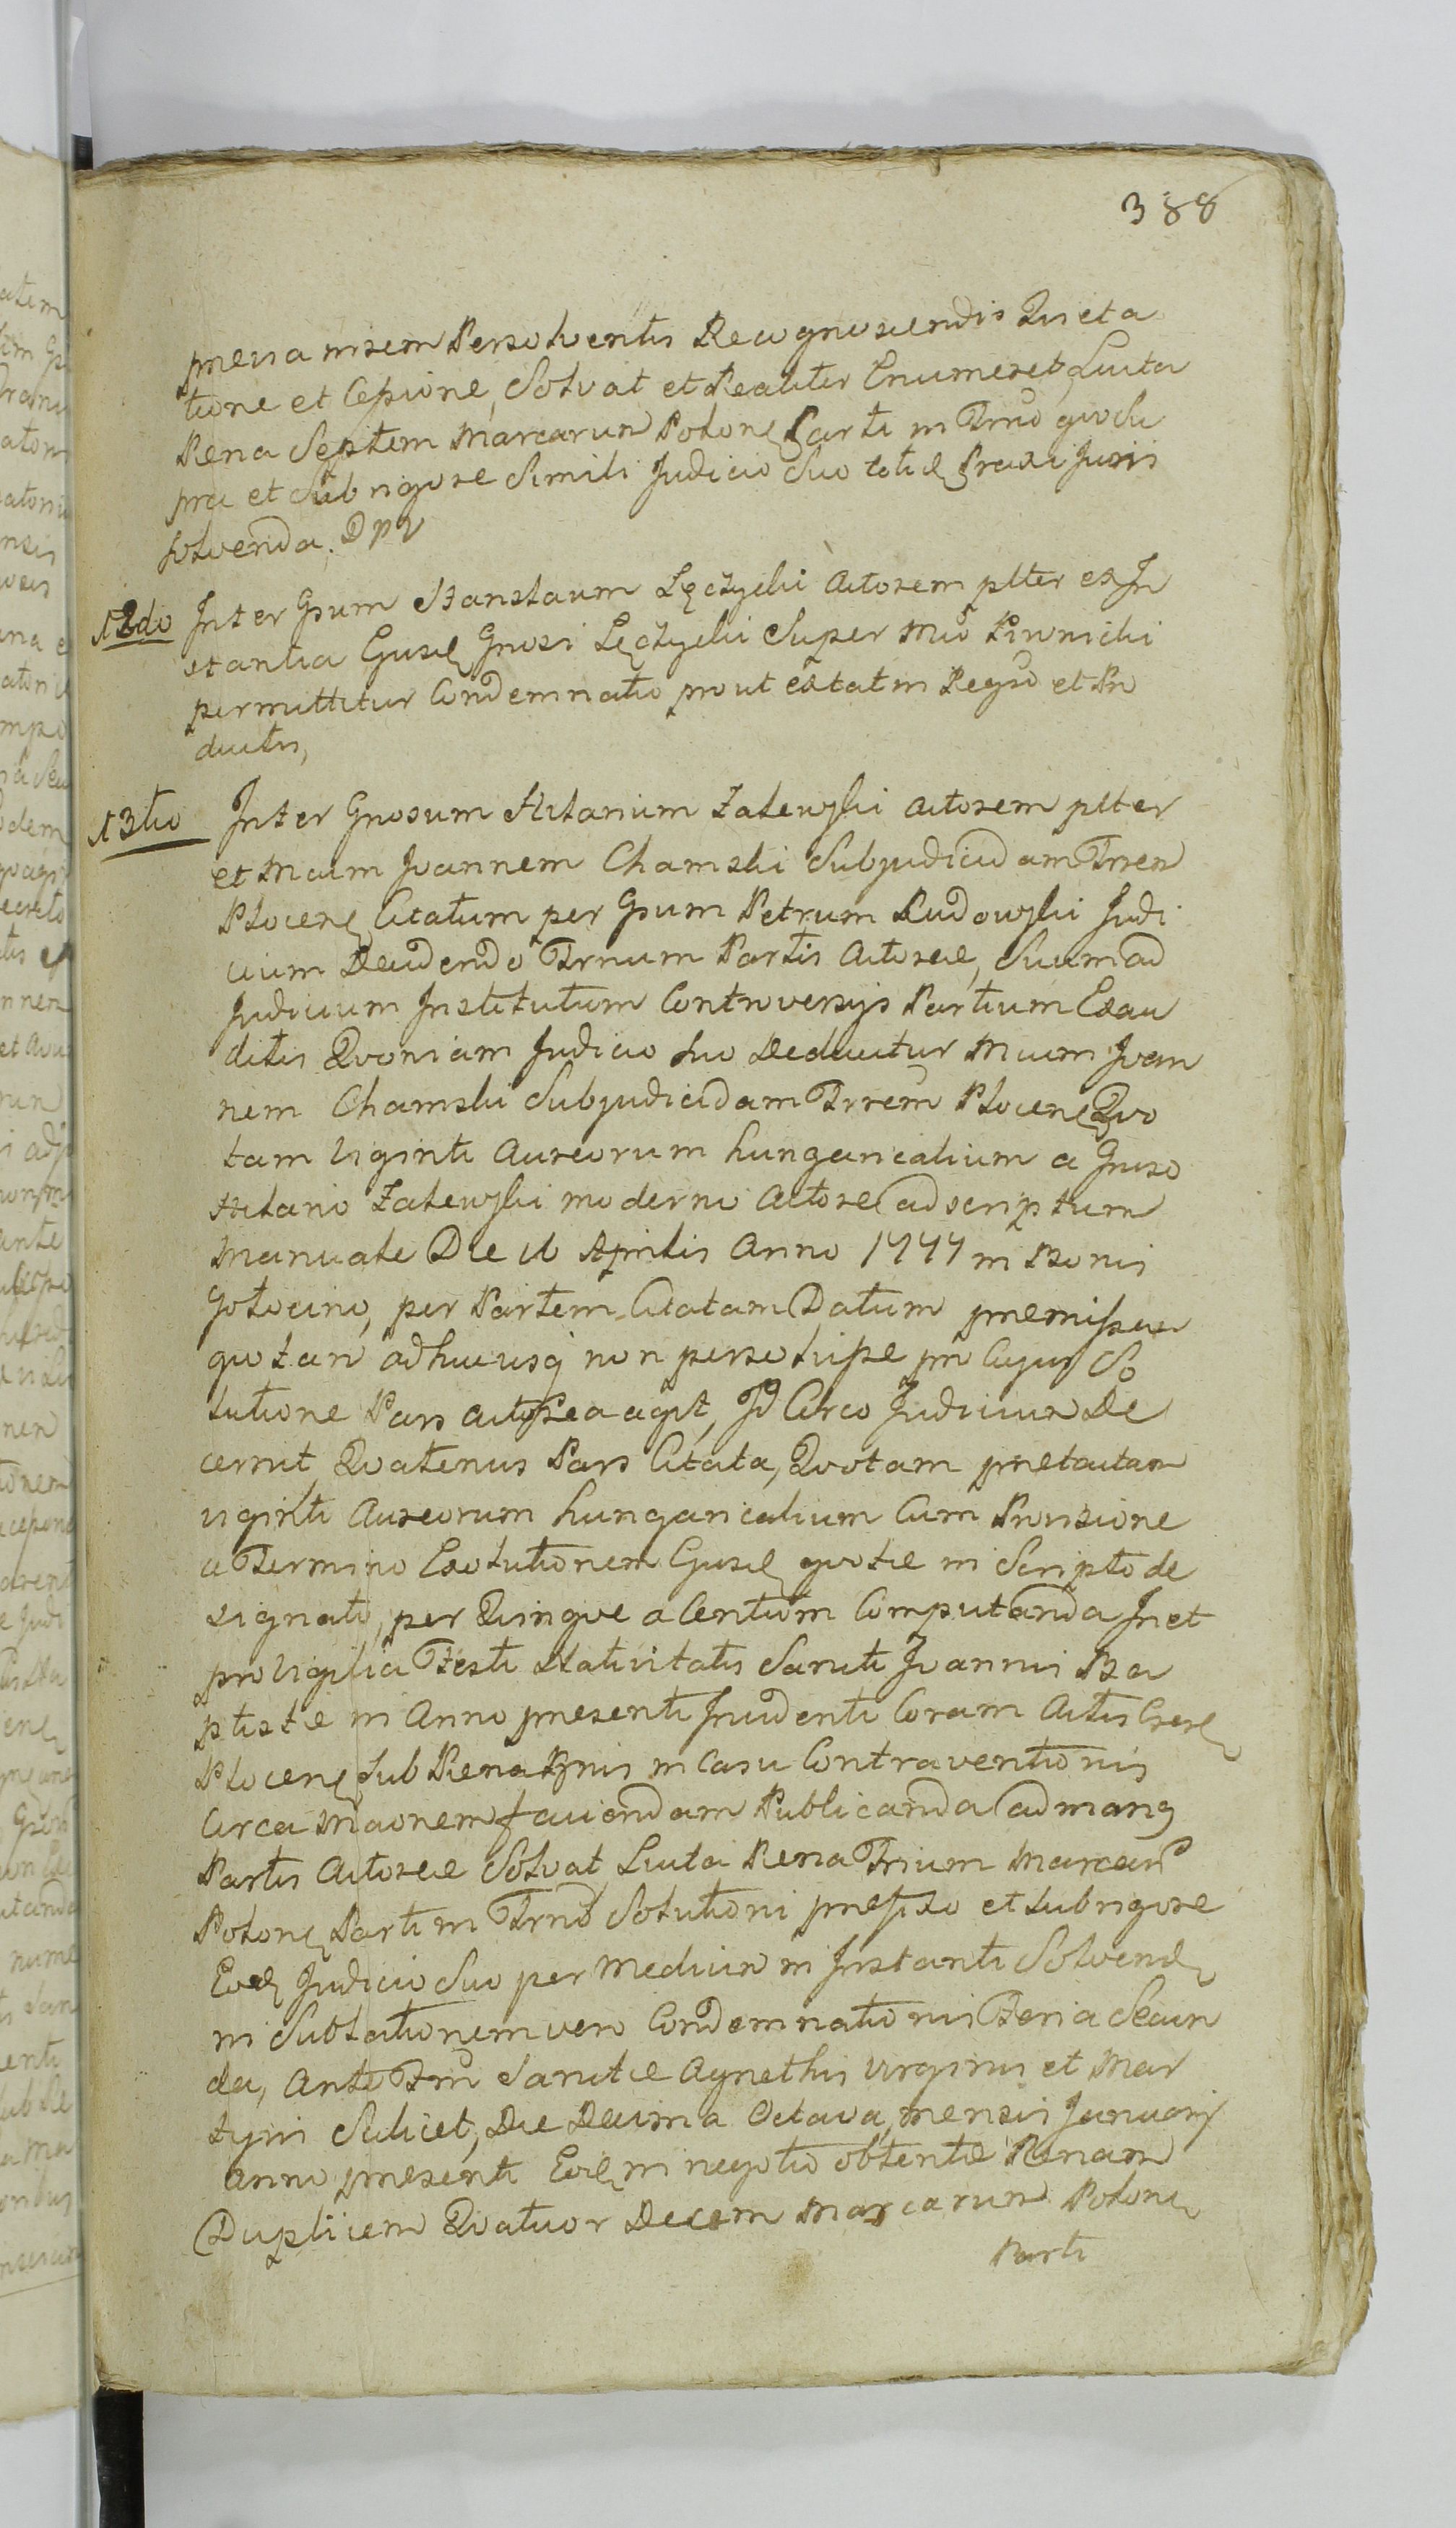 388
previa nisem Persolventis Recognoscendis Quieta
tione et Cessione, Solvat et Realiter Enumeret, Luita
Pena Septem Marcarum Polone Parti in Trno quo Su
pra et Sub rigore Simili Judicio Suo toties Praxi Juris
solvenda. DPV
N 2do Inter Gsum Stanslaum Lęczycki Actorem plter ex In
stantia Gusd Gnosi Lęczycki Super Mco Piwnicki
permittitur Condemnatio prout extat in Regro et Pro
ductis,
N 3tio Inter Gnosum Hilarium Zalewski Actorem plter
et Mcum Joannem Chamski Subjudicid am Trren
Plocens Citatum per Gsum Petrum Rudowski Judi
cium Decidendo Trnum Partis Actoreæ, Suum ad
Judicium Institutum Controversijs Partium Exau
ditis Quoniam Judicio suo Deducitur Mcum Joan
nem Chamski Subjudicidam Trrem Plocens Quo
tam Viginti Aureorum hungaricalium a Gnoso
Hilario Zalewski moderno Actore ad scriptum
Manuale Die 11 Aprilis Anno 1777 in Bonis
Gotocino, per Partem Citatam Datum premissam
quotam adhucusq non persolvisse pro Cujus So
lutione Pars actorea agit, Id Circo Judicium De
cernit Quatenus Pars Citata, Quotam prætactam
viginti Aureorum hungaricalium Cum Provisione
a Termino Exolutionem Gusd quotæ in Scripto de
signato, per Quinque a Centum Computanda In et
pro Vigilia Festi Nativitatis Sancti Joannis Ba
ptistæ in Anno presenti Incidenti Coram Actis Crses
Plocens sub Pena Bnis in Casu Contraventionis
Circa Maonem faciendam Publicanda ad manq
Partis Actoreæ Solvat, Luita Pena Trium Marcarum
Polone Parti in Trno Solutioni prefixo et sub rigore
Eod Judicio Suo per Medium in Instanti Solvend
in Sublationem vero Condemnationis Feria Secun
da, Ante Fm Sanctæ Agnethis Virginis et Mar
tyris Scilicet, Die Decima Octava, mensis Januarij
anno presenti Eod in negotio obtentæ Penam
Duplicem Quatuor Decem Marcarum Polone
Parti